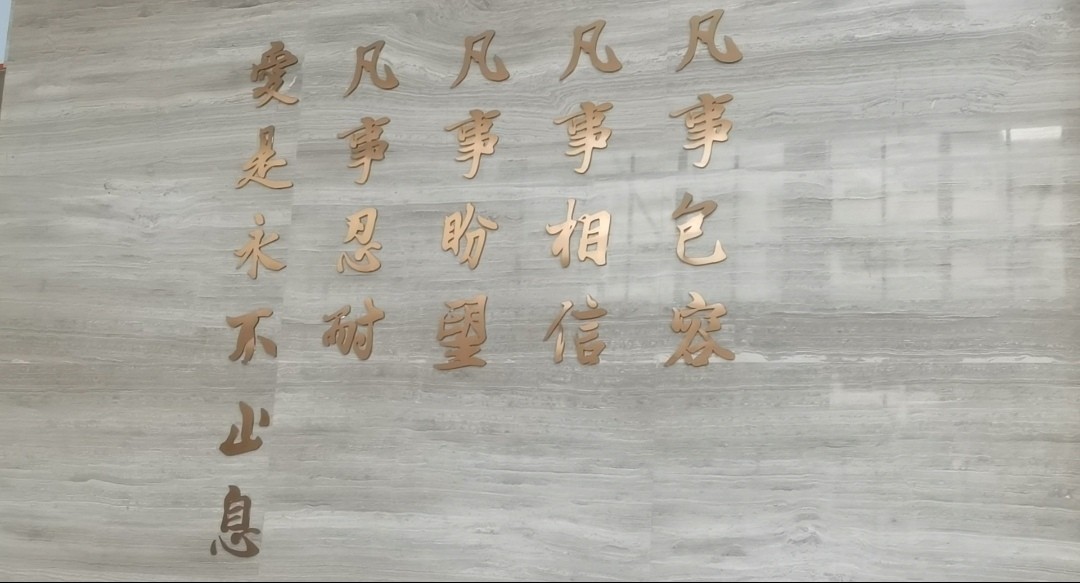 凡事包容
凡事相信
凡事盼望
凡事忍耐
愛是永不止息